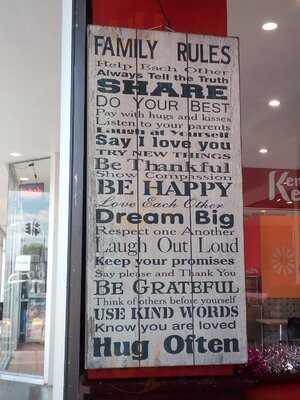 FAMILY RULES
Help Each Other
Always Tell the Truth
SHARE
DO YOUR BEST
Pay with hugs and kisses
Listen to your parents
Laugh at Yourself
Say I love you
TRY NEW THINGS
Be Thankful
Show Compassion
BE HAPPY
Love Each Other
Dream Big
Respect one Another
Laugh Out Loud
Keep your promises
Say please and Thank You
BE GRATEFUL
Think of others before yourself
USE KIND WORDS
Know you are loved
Hug Often